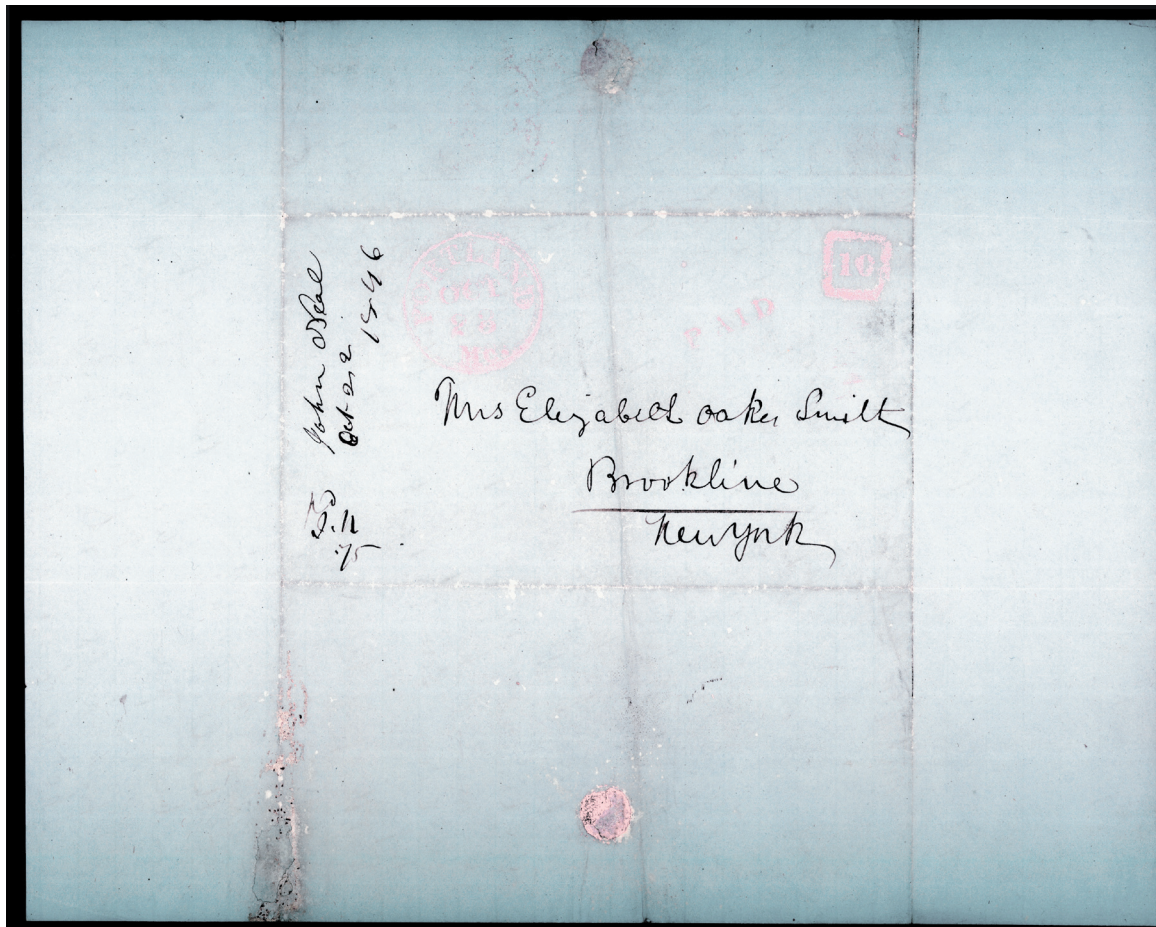 John Neal
Oct 22
1846
PORTLAND
OCT
Me.
10
Mrs Elizabeth Oakes Smith
Brookline
New York